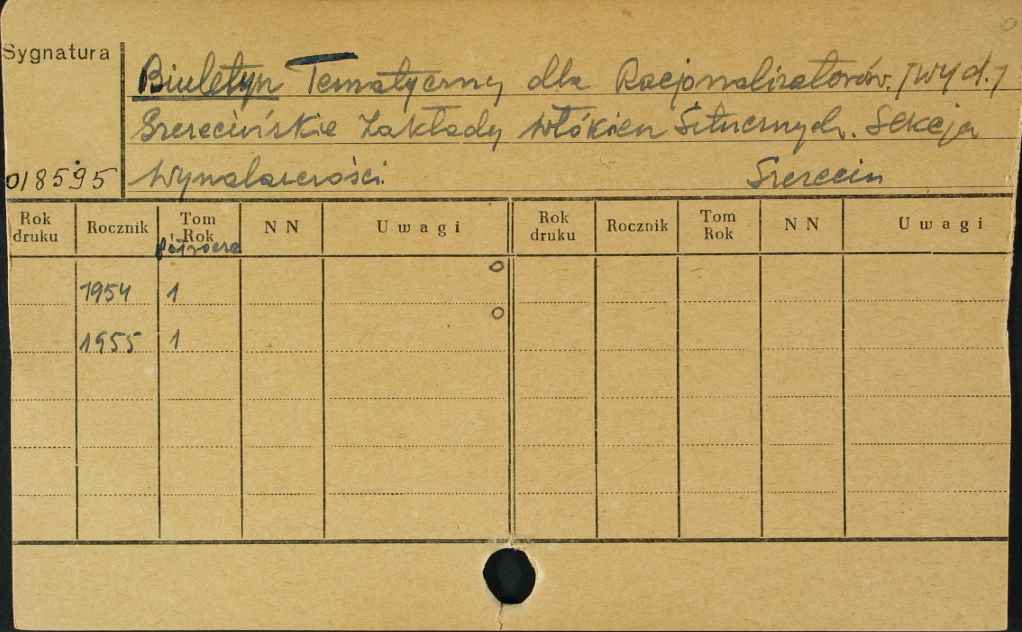 Sygnatura
Biuletyn Tematyczny dla Racjonalizatorów. /Wyd./
Szczecińskie Zakłady Włókien Sztucznych. Sekcja
018595 Wynalazczości. Szczecin
Rok druku Rocznik Tom Rok NN Uwagi Rok druku Rocznik Tom Rok NN Uwagi
półrocze
1954 1
1955 1